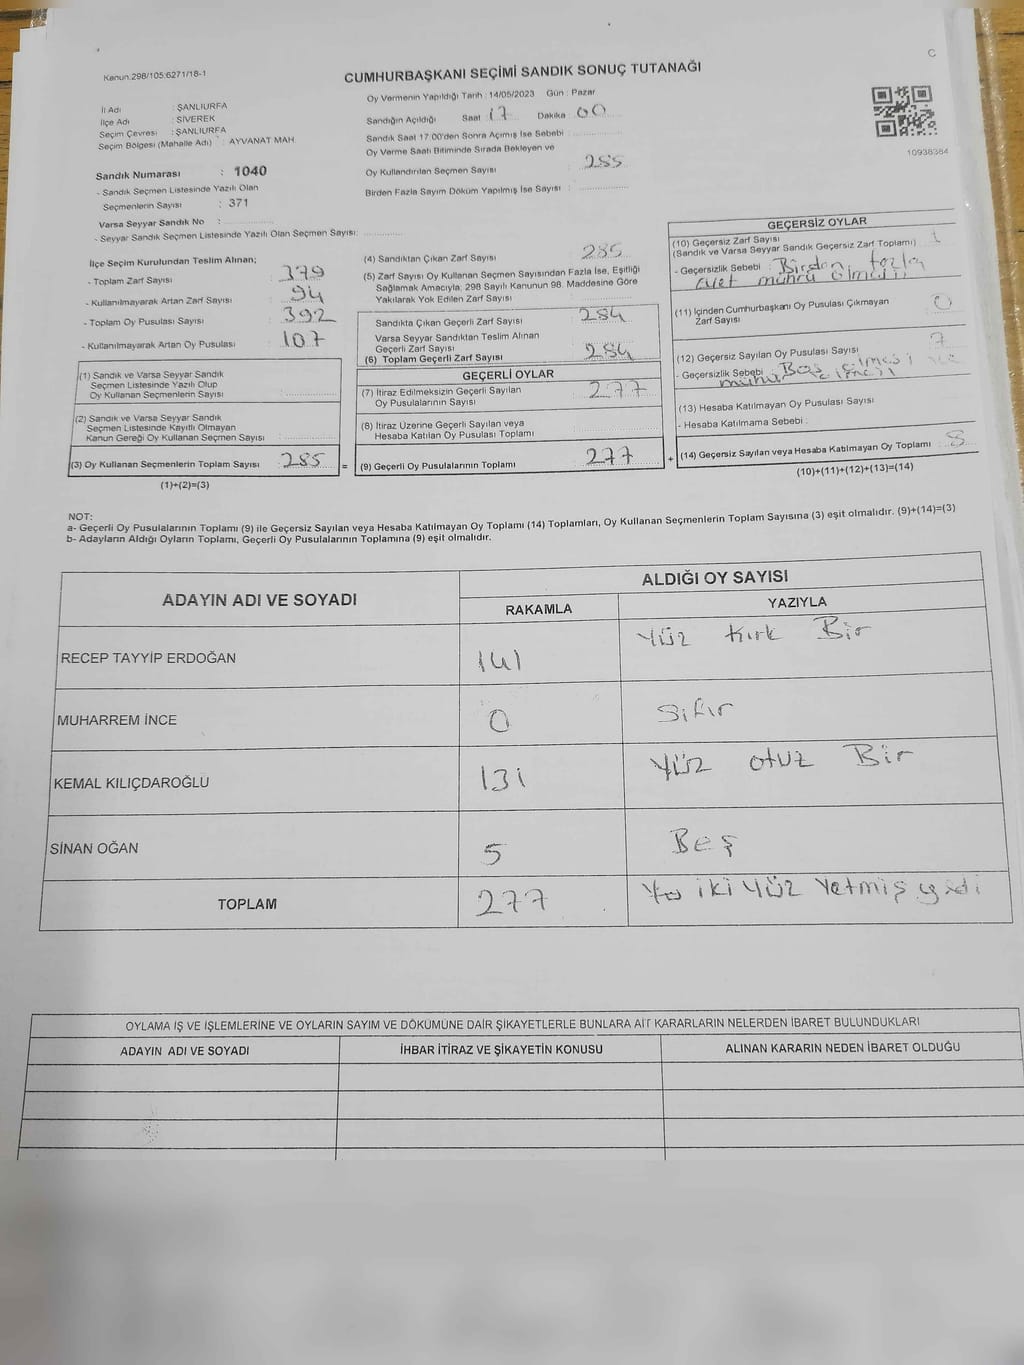 C
Kanun.298/105:6271/18-1
CUMHURBAŞKANI SEÇİMİ SANDIK SONUÇ TUTANAĞI
İl Adı : ŞANLIURFA
İlçe Adı : SİVEREK
Seçim Çevresi : ŞANLIURFA
Seçim Bölgesi (Mahalle Adı) : AYVANAT MAH.
Sandık Numarası : 1040
- Sandık Seçmen Listesinde Yazılı Olan
Seçmenlerin Sayısı : 371
Varsa Seyyar Sandık No :
- Seyyar Sandık Seçmen Listesinde Yazılı Olan Seçmen Sayısı:
Oy Vermenin Yapıldığı Tarih : 14/05/2023 Gün : Pazar
Sandığın Açıldığı Saat : 17 Dakika : 00
Sandık Saat 17:00'den Sonra Açılmış İse Sebebi :
Oy Verme Saati Bitiminde Sırada Bekleyen ve
Oy Kullandırılan Seçmen Sayısı : 285
Birden Fazla Sayım Döküm Yapılmış İse Sayısı :
10938384
İlçe Seçim Kurulundan Teslim Alınan;
- Toplam Zarf Sayısı : 379
- Kullanılmayarak Artan Zarf Sayısı : 94
- Toplam Oy Pusulası Sayısı : 392
- Kullanılmayarak Artan Oy Pusulası : 107
(1) Sandık ve Varsa Seyyar Sandık
Seçmen Listesinde Yazılı Olup
Oy Kullanan Seçmenlerin Sayısı :
(2) Sandık ve Varsa Seyyar Sandık
Seçmen Listesinde Kayıtlı Olmayan
Kanun Gereği Oy Kullanan Seçmen Sayısı :
(3) Oy Kullanan Seçmenlerin Toplam Sayısı : 285
(1)+(2)=(3)
=
(4) Sandıktan Çıkan Zarf Sayısı : 285
(5) Zarf Sayısı Oy Kullanan Seçmen Sayısından Fazla İse, Eşitliği
Sağlamak Amacıyla, 298 Sayılı Kanunun 98. Maddesine Göre
Yakılarak Yok Edilen Zarf Sayısı :
Sandıkta Çıkan Geçerli Zarf Sayısı : 284
Varsa Seyyar Sandıktan Teslim Alınan
Geçerli Zarf Sayısı :
(6) Toplam Geçerli Zarf Sayısı : 284
GEÇERLİ OYLAR
(7) İtiraz Edilmeksizin Geçerli Sayılan
Oy Pusulalarının Sayısı : 277
(8) İtiraz Üzerine Geçerli Sayılan veya
Hesaba Katılan Oy Pusulası Toplamı :
(9) Geçerli Oy Pusulalarının Toplamı : 277
+
GEÇERSİZ OYLAR
(10) Geçersiz Zarf Sayısı
(Sandık ve Varsa Seyyar Sandık Geçersiz Zarf Toplamı) : 1
- Geçersizlik Sebebi : Birden fazla
evet mührü
(11) İçinden Cumhurbaşkanı Oy Pusulası Çıkmayan
Zarf Sayısı : 0
(12) Geçersiz Sayılan Oy Pusulası Sayısı : 7
- Geçersizlik Sebebi :
(13) Hesaba Katılmayan Oy Pusulası Sayısı
- Hesaba Katılmama Sebebi :
(14) Geçersiz Sayılan veya Hesaba Katılmayan Oy Toplamı : 8
(10)+(11)+(12)+(13)=(14)
NOT:
a- Geçerli Oy Pusulalarının Toplamı (9) ile Geçersiz Sayılan veya Hesaba Katılmayan Oy Toplamı (14) Toplamları, Oy Kullanan Seçmenlerin Toplam Sayısına (3) eşit olmalıdır. (9)+(14)=(3)
b- Adayların Aldığı Oyların Toplamı, Geçerli Oy Pusulalarının Toplamına (9) eşit olmalıdır.
ADAYIN ADI VE SOYADI
ALDIĞI OY SAYISI
RAKAMLA YAZIYLA
RECEP TAYYİP ERDOĞAN 141 Yüz Kırk Bir
MUHARREM İNCE 0 Sıfır
KEMAL KILIÇDAROĞLU 131 Yüz otuz Bir
SİNAN OĞAN 5 Beş
TOPLAM 277 iki Yüz Yetmiş yedi
OYLAMA İŞ VE İŞLEMLERİNE VE OYLARIN SAYIM VE DÖKÜMÜNE DAİR ŞİKAYETLERLE BUNLARA AİT KARARLARIN NELERDEN İBARET BULUNDUKLARI
ADAYIN ADI VE SOYADI İHBAR İTİRAZ VE ŞİKAYETİN KONUSU ALINAN KARARIN NEDEN İBARET OLDUĞU